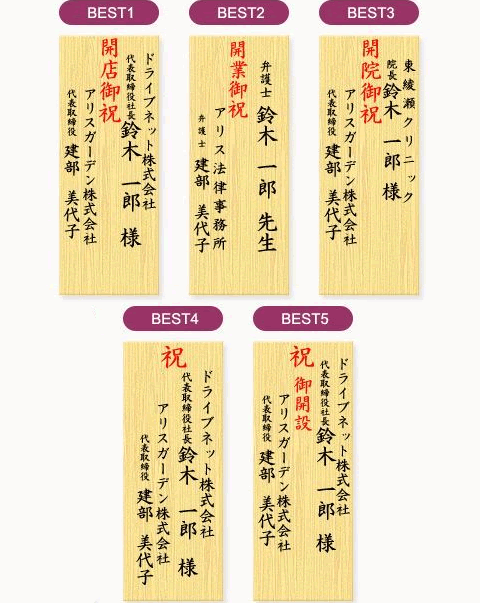 BEST1
開店御祝
ドライブネット株式会社
代表取締役社長 鈴木 一郎 様
アリスガーデン株式会社
代表取締役 建部 美代子
BEST2
開業御祝
弁護士 鈴木 一郎 先生
アリス法律事務所
弁護士 建部 美代子
BEST3
開院御祝
東綾瀬クリニック
院長 鈴木 一郎 様
アリスガーデン株式会社
代表取締役 建部 美代子
BEST4
祝
ドライブネット株式会社
代表取締役社長 鈴木 一郎 様
アリスガーデン株式会社
代表取締役 建部 美代子
BEST5
祝 御開設
ドライブネット株式会社
代表取締役社長 鈴木 一郎 様
アリスガーデン株式会社
代表取締役 建部 美代子